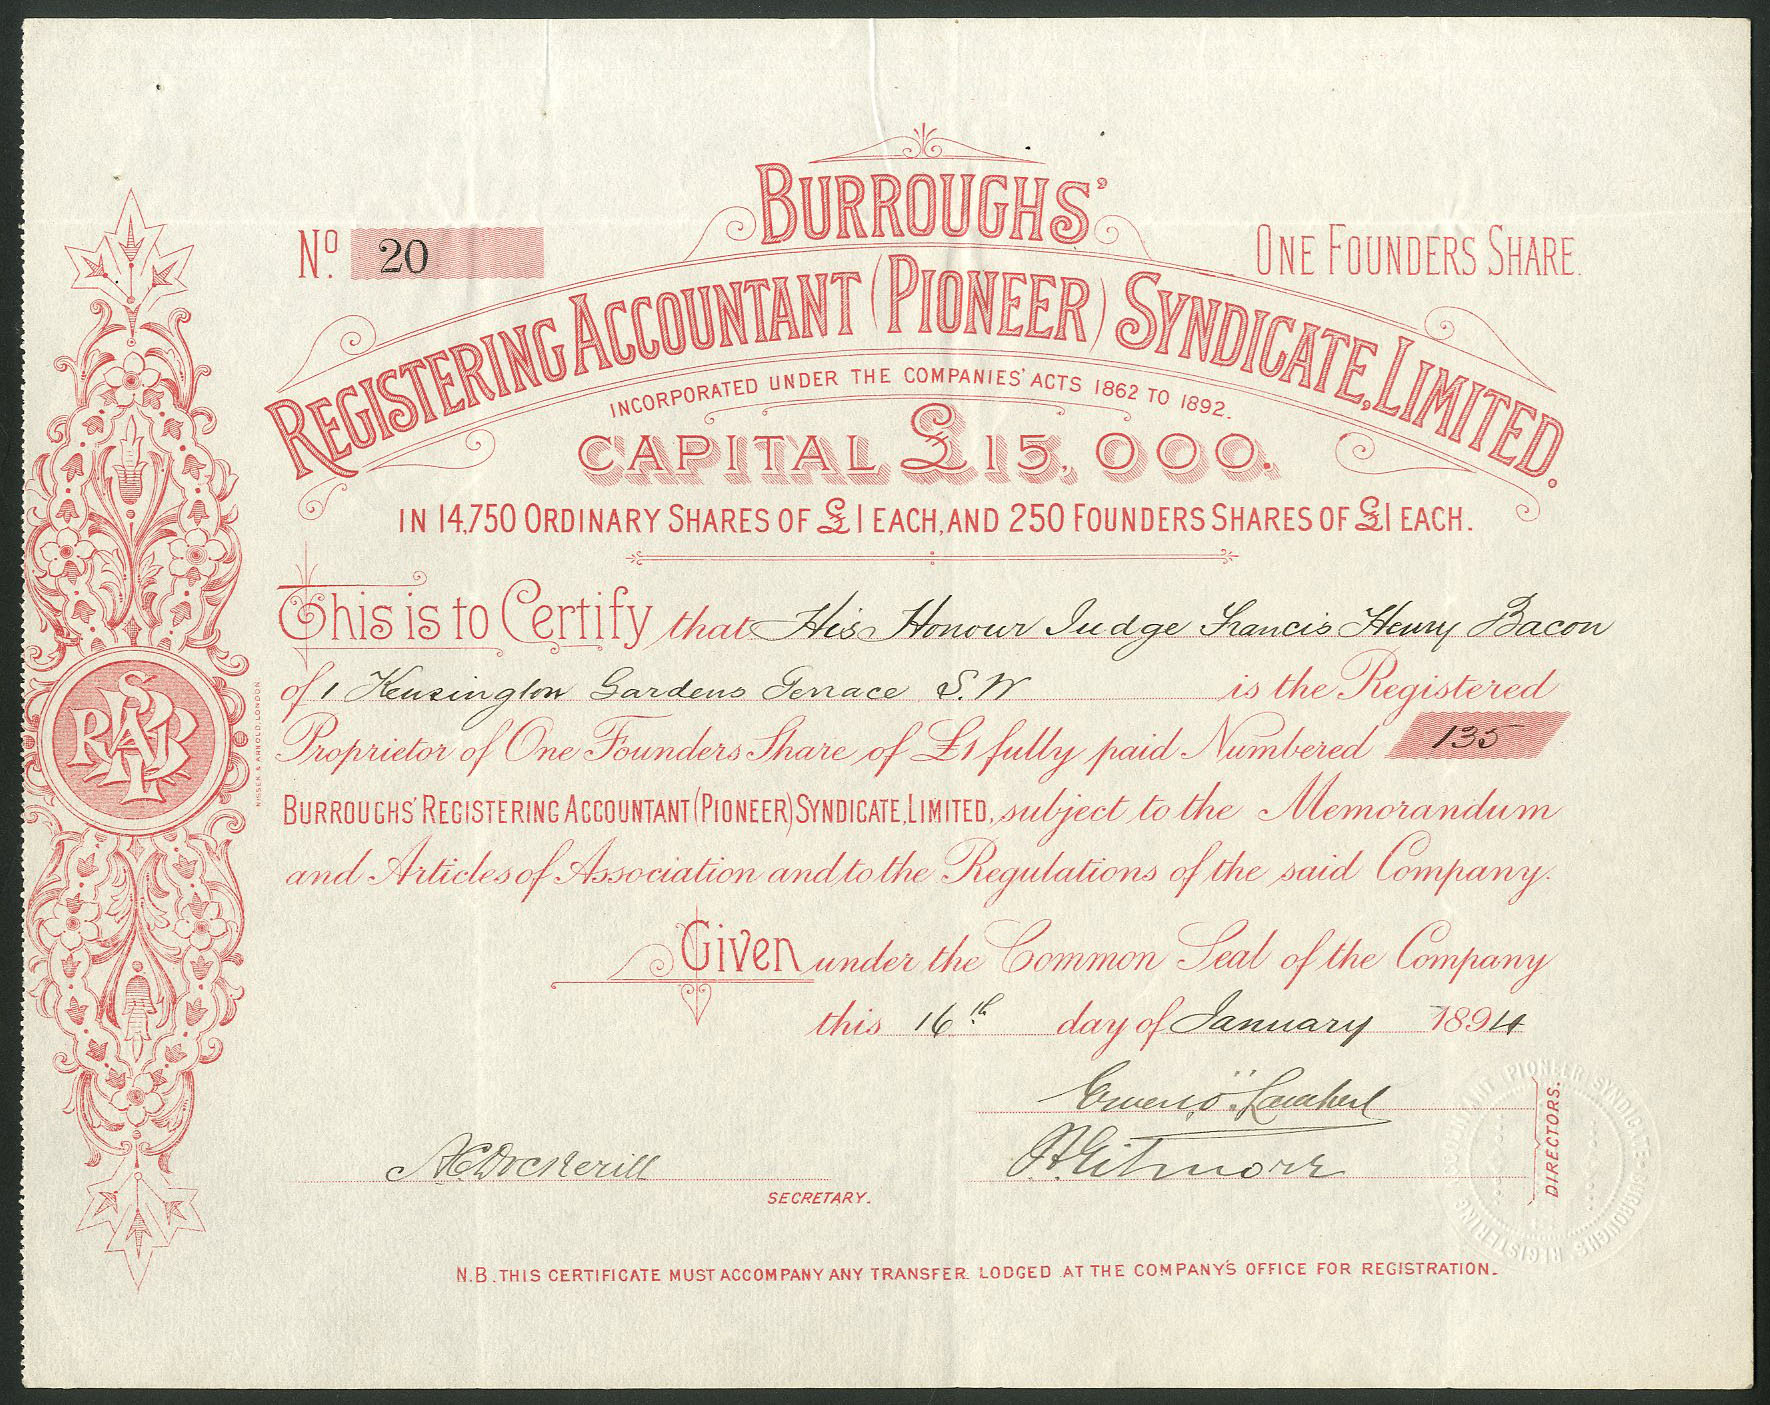 BURROUGHS'
No. 20
ONE FOUNDERS SHARE.
REGISTERING ACCOUNTANT (PIONEER) SYNDICATE, LIMITED.
INCORPORATED UNDER THE COMPANIES' ACTS 1862 TO 1892.
CAPITAL £15,000.
IN 14,750 ORDINARY SHARES OF £1 EACH, AND 250 FOUNDERS SHARES OF £1 EACH.
This is to Certify that His Honour Judge Francis Henry Bacon
of 1 Kensington Gardens Terrace S.W is the Registered
Proprietor of One Founders Share of £1 fully paid Numbered 135
BURROUGHS' REGISTERING ACCOUNTANT (PIONEER) SYNDICATE, LIMITED, subject to the Memorandum
and Articles of Association and to the Regulations of the said Company.
Given under the Common Seal of the Company
this 16th day of January 1894
DIRECTORS.
SECRETARY.
N.B. THIS CERTIFICATE MUST ACCOMPANY ANY TRANSFER LODGED AT THE COMPANY'S OFFICE FOR REGISTRATION.
NISSEN & ARNOLD, LONDON
BURROUGHS REGISTERING ACCOUNTANT PIONEER SYNDICATE